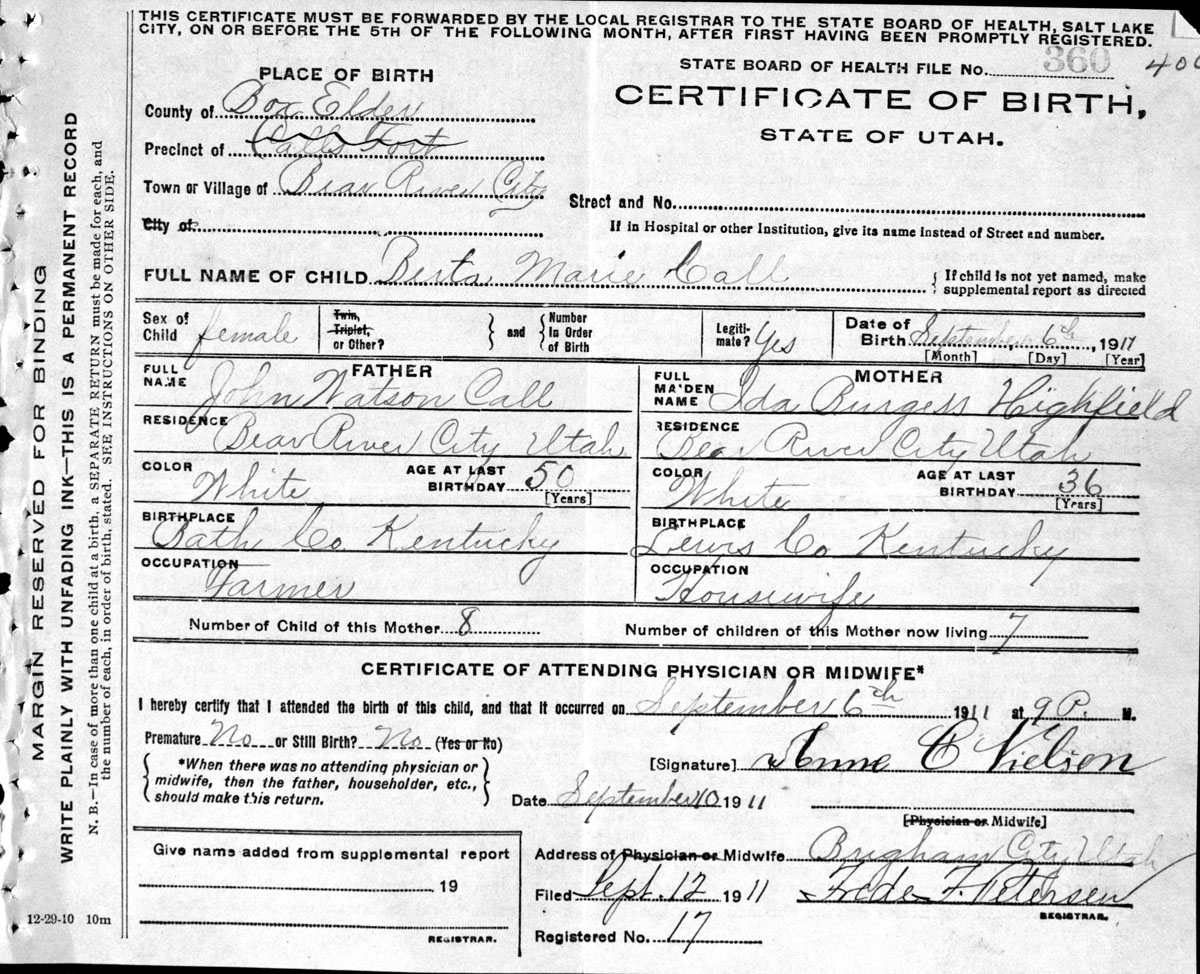 THIS CERTIFICATE MUST BE FORWARDED BY THE LOCAL REGISTRAR TO THE STATE BOARD OF HEALTH, SALT LAKE
CITY, ON OR BEFORE THE 5TH OF THE FOLLOWING MONTH, AFTER FIRST HAVING BEEN PROMPTLY REGISTERED.
MARGIN RESERVED FOR BINDING
WRITE PLAINLY WITH UNFADING INK—THIS IS A PERMANENT RECORD
N. B.—In case of more than one child at a birth, a SEPARATE RETURN must be made for each, and
the number of each, in order of birth, stated. SEE INSTRUCTIONS ON OTHER SIDE.
12-29-10 10m
STATE BOARD OF HEALTH FILE No. 360
CERTIFICATE OF BIRTH,
STATE OF UTAH.
PLACE OF BIRTH
County of Box Elder
Precinct of Calls Fort
Town or Village of Bear River City
Street and No.
City of
If in Hospital or other Institution, give its name instead of Street and number.
FULL NAME OF CHILD Berta Marie Call
{ If child is not yet named, make
supplemental report as directed
Sex of Child female
Twin, Triplet, or Other?
and
Number In Order of Birth
Legitimate? Yes
Date of Birth September 6th, 1911
[Month] [Day] [Year]
FATHER
FULL NAME John Watson Call
RESIDENCE Bear River City Utah
COLOR White
AGE AT LAST BIRTHDAY 50
[Years]
BIRTHPLACE Bath Co Kentucky
OCCUPATION Farmer
MOTHER
FULL MAIDEN NAME Ida Burgess Highfield
RESIDENCE Bear River City Utah
COLOR White
AGE AT LAST BIRTHDAY 36
[Years]
BIRTHPLACE Lewis Co Kentucky
OCCUPATION Housewife
Number of Child of this Mother 8
Number of children of this Mother now living 7
CERTIFICATE OF ATTENDING PHYSICIAN OR MIDWIFE*
I hereby certify that I attended the birth of this child, and that it occurred on September 6th 1911 at 9 P. M.
Premature No or Still Birth? No (Yes or No)
*When there was no attending physician or
midwife, then the father, householder, etc.,
should make this return.
[Signature] Anne C Nielsen
Date September 10 1911
[Physician or Midwife]
Give name added from supplemental report
19
REGISTRAR.
Address of Physician or Midwife Brigham City Utah
Filed Sept. 12 1911 Frede F. Petersen
REGISTRAR.
Registered No. 17